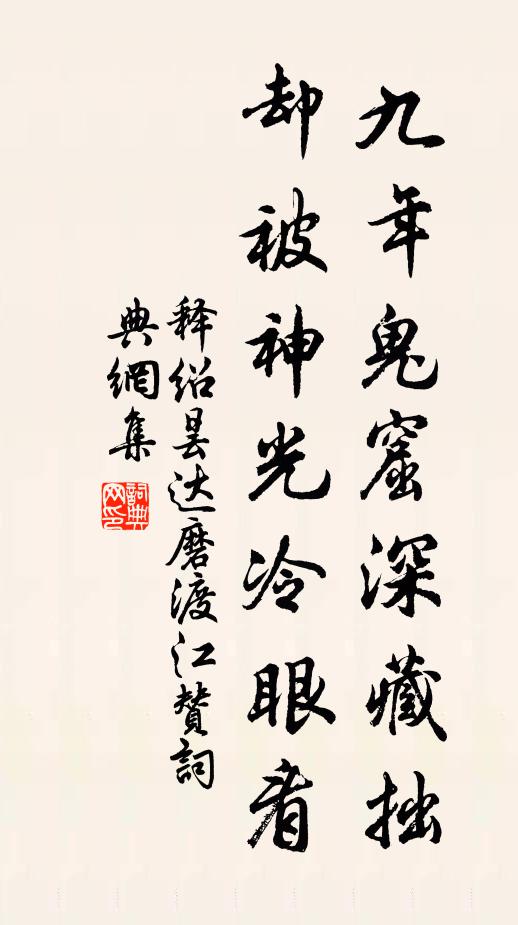 九年鬼窟深藏拙
却被神光冷眼看
释绍昙达磨渡江赞词
典網集
詞典
网印